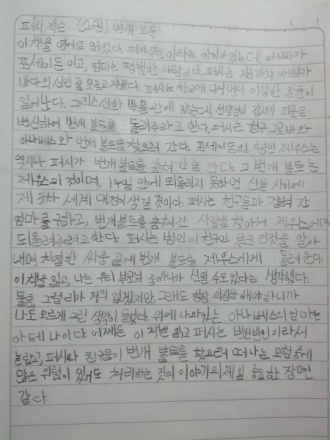 퍼시 잭슨 (1권) 번개 도둑
이 책을 영어로 읽었다. 퍼시 잭슨
포세이돈 이고, 엄마는 평범한 사람이다. 퍼시는 지금까지 아빠가
바다의 신인 줄 모르고 지냈다. 퍼시는 학교에 다니면서 이상한 일들이
일어난다. 그리스 신화 박물관에 갔는데 선생님이 갑자기 괴물로
변신하여 번개 볼트를 돌려주라고 한다. 퍼시는 친구 그로버와
아나베스와 번개 볼트를 찾으러 간다. 포세이돈의 형인 제우스는
역시나 퍼시가 번개 볼트를 훔쳐 간 줄 안다. 그 번개 볼트는
제우스의 것이며, 14일 안에 되돌리지 못하면 신들 사이에
제 3차 세계 대전이 생길 것이다. 퍼시는 친구들과 함께
엄마를 구하고, 번개볼트를 훔쳐간 사람을 찾아서 제우스에게
되돌려주려고 한다. 퍼시는 범인이 친구인 루크 인것을 알아
내며 치열한 싸움 끝에 번개 볼트를 제우스에게 돌려준다.
이 책을 읽고, 나는 우리 부모님 중 하나가 신일 수도 있다는 생각했다.
물론 그럴리가 거의 없겠지만, 그래도 항상 의심을 해야 하니까
나도 모르게 그런 생각이 들었다. 위에 나와있는 아나베스의 엄마는
아테나 이다. 어쨌든 이 책을 읽고 퍼시는 반신반인 이라서
놀랐고, 퍼시와 친구들이 번개 볼트를 찾으러 떠나는 모험 중에
많은 위험이 있어도 처리하는 것이 이야기의 제일 중요한 장면
같다.